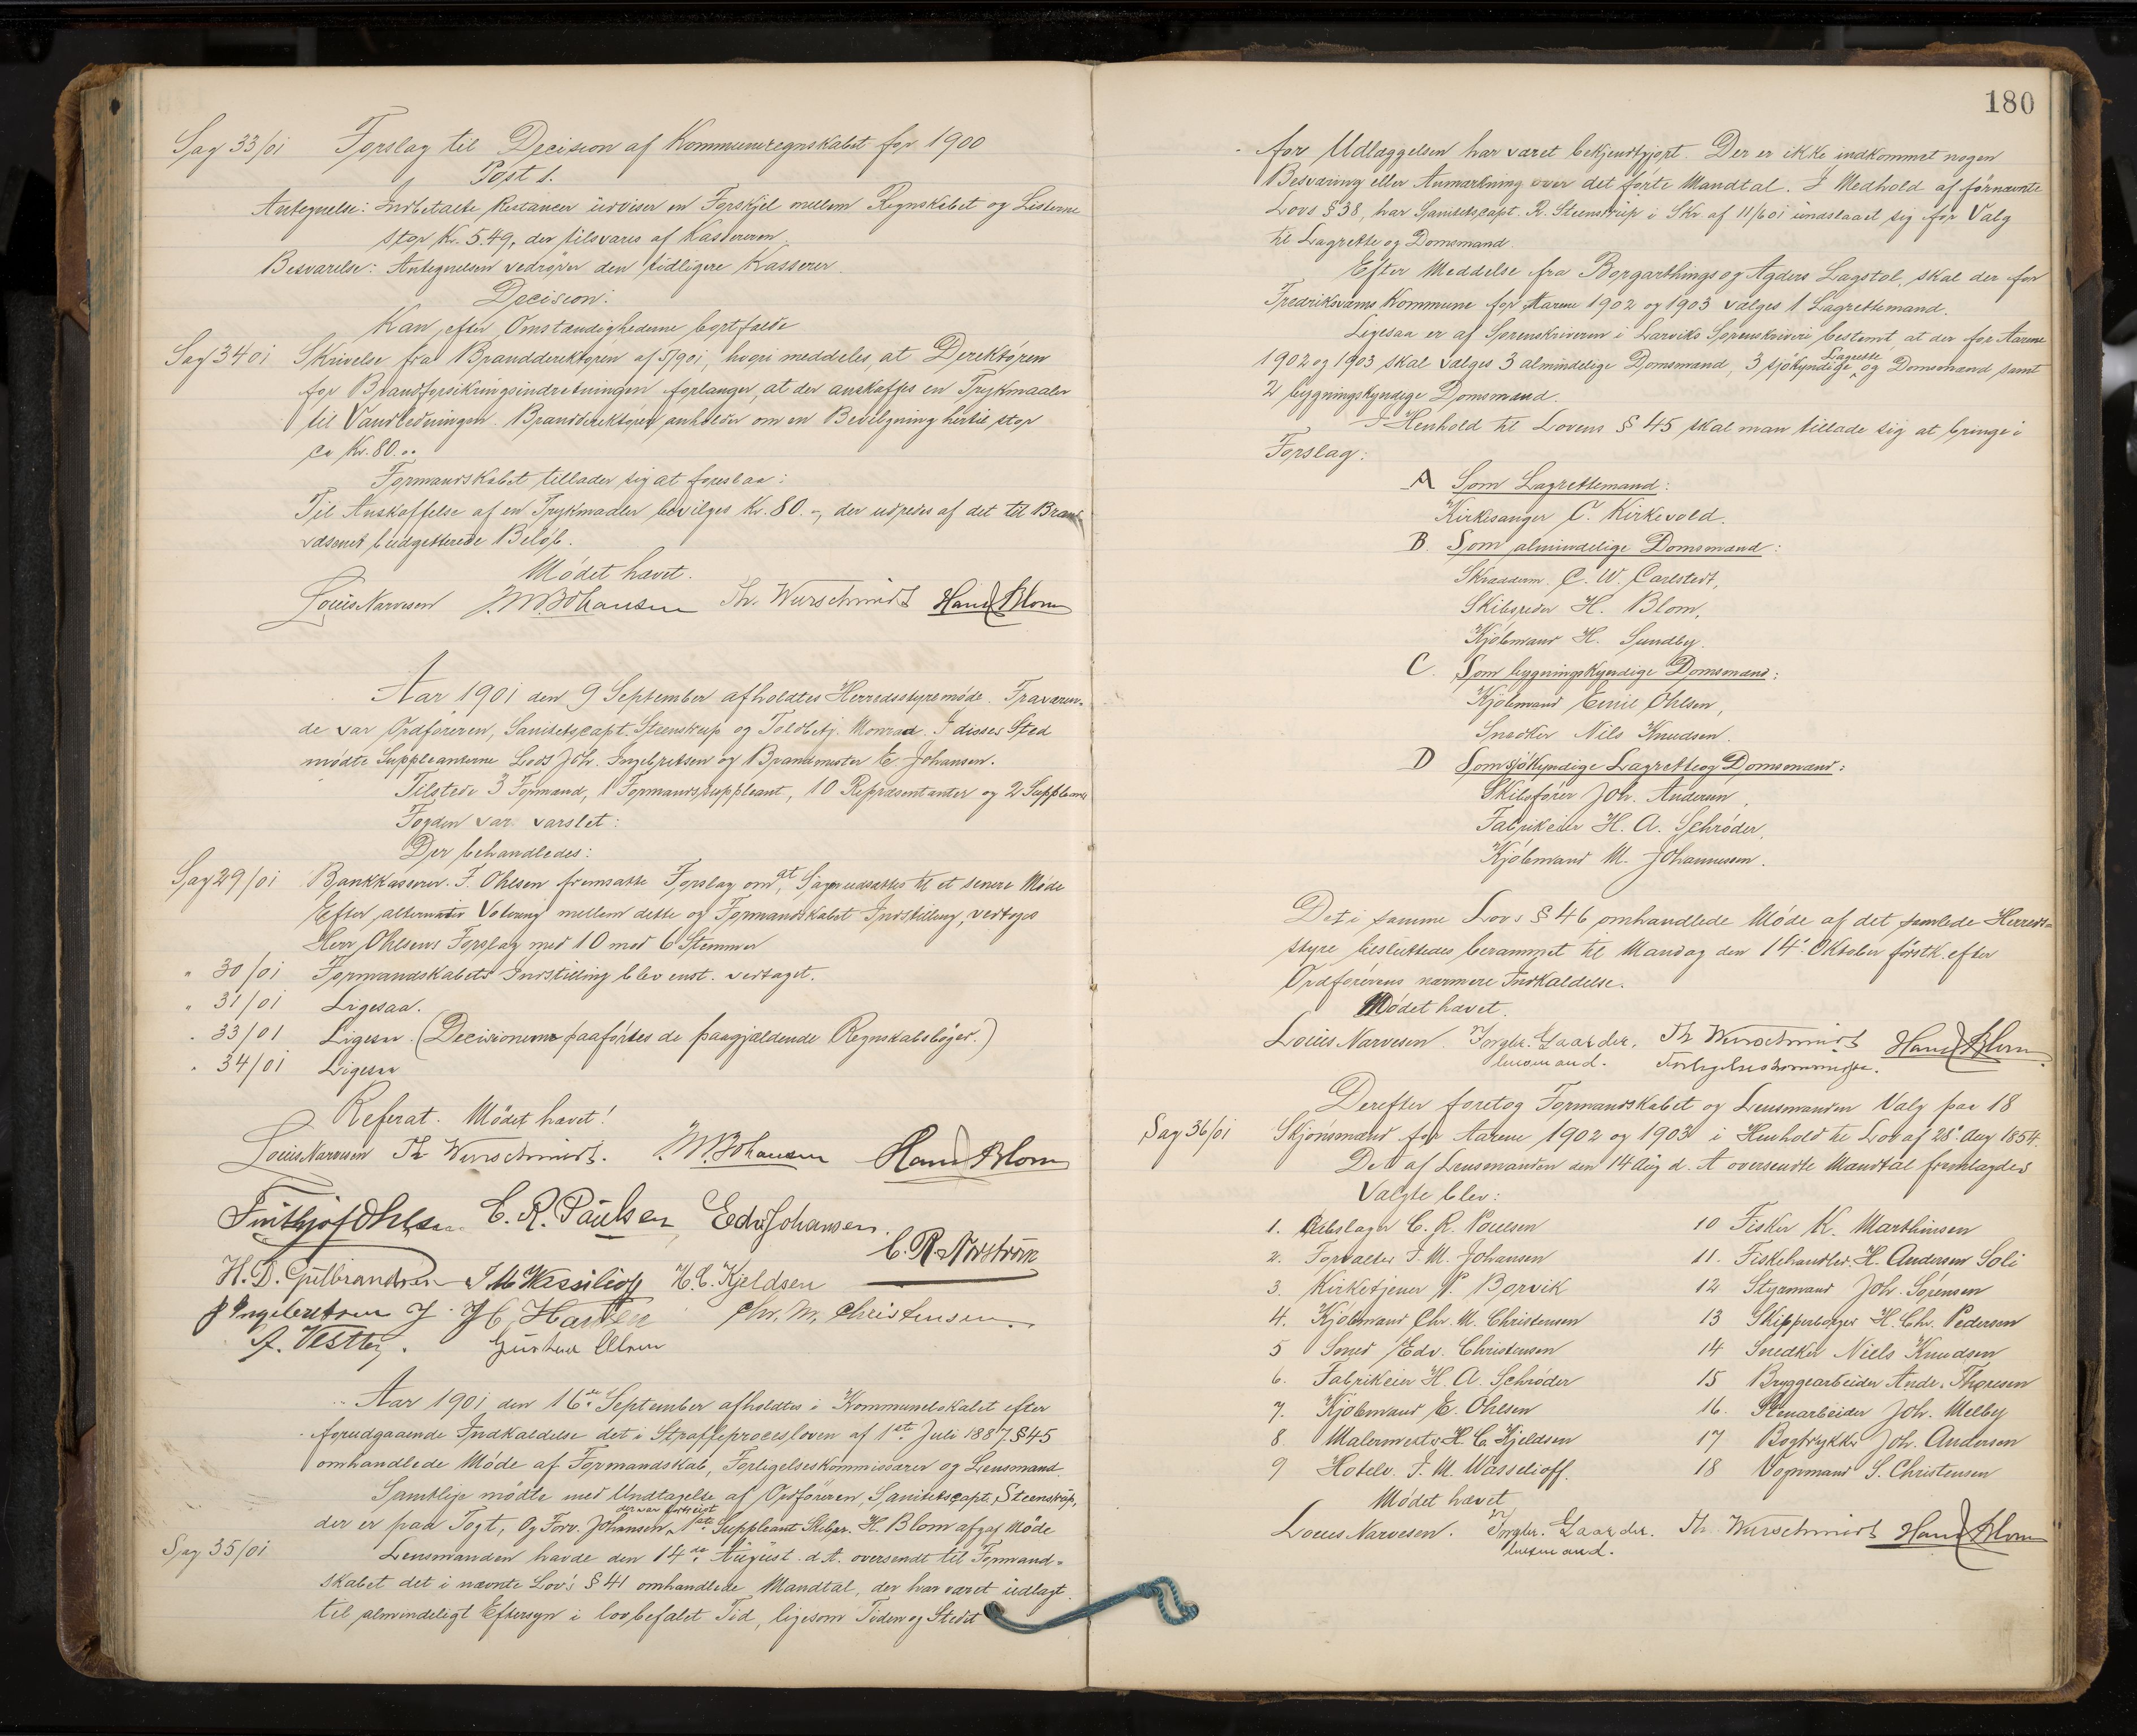 Sag 33/01 Forslag til Decision af Kommuneregnskabet for 1900
Post 1.
Antegnelse: Indbetalte Restancer udviser en Forskjel mellem Regnskabet og Listerne
stor Kr. 5.49, der tilsvares af Kassereren.
Besvarelse: Antegnelsen vedrører den tidligere Kasserer.
Decision:
Kan efter Omstændighederne bortfalde
Sag 34/01 Skrivelse fra Branddirektøren af 5/7 901, hvori meddeles, at Direktøren
for Brandforsikringsindretningen forlanger, at der anskaffes en Trykmaaler
til Vandledningen. Branddirektøren anholder om en Bevilgning hertil stor
ca Kr. 80.00
Formandskabet tillader sig at foreslaa:
Til Anskaffelse af en Trykmaaler bevilges Kr. 80.-, der udredes af det til Brand-
væsenet budgetterede Beløb.
Mødet hævet.
Louis Narvesen J. M. Johansen Th. Wurschmidt Hans Blom
Aar 1901 den 9 September afholdtes Herredsstyremøde. Fraværen-
de var Ordføreren, Sanitetscapt. Steenstrup og Toldbetj. Monrad. I disses Sted
mødte Suppleanterne Lods Joh. Ingebretsen og Brandmester E Johansen.
Tilstede 3 Formænd, 1 Formandssuppleant, 10 Repræsentanter og 2 Suppleanter
Fogden var varslet:
Der behandledes:
Sag 29/01 Bankkasserer F. Ohlsen fremsatte Forslag om at Sagen udsættes til et senere Møde
Efter alternativ Votering mellem dette og Formandskabet Indstilling, vedtoges
Herr Ohlsens Forslag med 10 mod 6 Stemmer
" 30/01 Formandskabets Indstilling blev enst. vedtaget.
" 31/01 Ligesaa.
" 33/01 Ligesaa. (Decisionerne paaførtes de paagjældende Regnskabsbøger.)
" 34/01 Ligesaa
Referat. Mødet hævet!
Louis Narvesen Th Wurschmidt. J. M. Johansen Hans Blom
Frithjof Ohlsen C. R. Paulsen Edv Johansen.
C. R. Norstrøm
H. D. Gulbrandsen J M Wassilioff H. C. Kjeldsen
J Ingebretsen J. H. C. Hansen Chr. M. Christensen.
A. Vestby. Gustav Olsen
Aar 1901 den 16de September afholdtes i Kommunelokalet efter
forudgaaende Indkaldelse det i Straffeprocesloven af 1ste Juli 1887 § 45
omhandlede Møde af Formandskab, Forligelseskommissærer og Lensmand.
Samtlige mødte med Undtagelse af Ordføreren, Sanitetscapt. Steenstrup,
der er paa Togt, og Forv. Johansen, der var bortreist. 1ste Suppleant Skibsr. H. Blom afgaf Møde
Sag 35/01 Lensmanden havde den 14de August d. A. oversendt til Formand-
skabet det i nævnte Lov's § 41 omhandlede Mandtal, der har været udlagt
til almindeligt Eftersyn i lovbefalet Tid, ligesom Tiden og Stedet
180
for Udlæggelsen har været bekjendtgjort. Der er ikke indkommet nogen
Besværing eller Anmærkning over det førte Mandtal. I Medhold af førnævnte
Lovs § 38, har Sanitetscapt. R. Steenstrup i Skr. af 11/6 01 undslaaet sig for Valg
til Lagrette og Domsmand.
Efter Meddelse fra Borgarthings og Agders Lagstol, skal der for
Fredriksværns Kommune for Aarene 1902 og 1903 vælges 1 Lagrettemand.
Ligesaa er af Sorenskriveren i Larviks Sorenskriveri bestemt, at der for Aarene
1902 og 1903 skal vælges 3 almindelige Domsmænd, 3 sjøkyndige Lagrette og Domsmænd samt
2 bygningskyndige Domsmænd.
I Henhold til Lovens § 45 skal man tillade sig at bringe i
Forslag:
A Som Lagrettemand:
Kirkesanger C. Kirkevold.
B. Som almindelige Domsmænd:
Skræderm. C. W. Carlstedt,
Skibsreder H. Blom,
Kjøbmand H. Sundby.
C. Som bygningskyndige Domsmænd:
Kjøbmand Emil Ohlsen,
Snedker Nils Knudsen.
D Som sjøkyndige Lagrette og Domsmænd:
Skibsfører Joh. Andersen,
Fabrikeier H. A. Schrøder,
Kjøbmand M. Johannessen.
Det i samme Lovs § 46 omhandlede Møde af det samlede Herreds-
styre besluttedes berammet til Mandag den 14. Oktober førstk. efter
Ordførerens nærmere Indkaldelse.
Mødet hævet.
Louis Narvesen. Ingbr. Gaarder. Th Wurschmidt Hans Blom
lensmand. Forligelseskommissær.
Derefter foretog Formandskabet og Lensmanden Valg paa 18
Sag 36/01 Skjønsmænd for Aarene 1902 og 1903 i Henhold til Lov af 28. Aug 1854.
Det af Lensmanden den 14 Aug d. A oversendte Mandtal fremlagdes
Valgte blev:
1. Rebslager C. R. Poulsen
2. Forvalter J. M. Johansen
3. Kirketjener P. Borvik
4. Kjøbmand Chr. M. Christensen
5 Smed Edv. Christensen
6. Fabrikeier H. A. Schrøder
7. Kjøbmand E. Ohlsen
8 Malermester H. C. Kjeldsen
9 Hotelv. J. M. Wasselioff.
10 Fisker K. Marthinsen
11. Fiskehandler H. Andersen Soli
12 Styrmand Joh. Sørensen
13 Skipperborger H. Chr. Pedersen
14 Snedker Niels Knudsen
15 Bryggearbeider Andr. Thoresen
16. Stenarbeider Joh. Melby
17 Bogtrykker Joh. Andersen
18 Vognmand S. Christensen
Mødet hævet
Louis Narvesen. Ingbr. Gaarder. Th. Wurschmidt Hans Blom
lensmand.